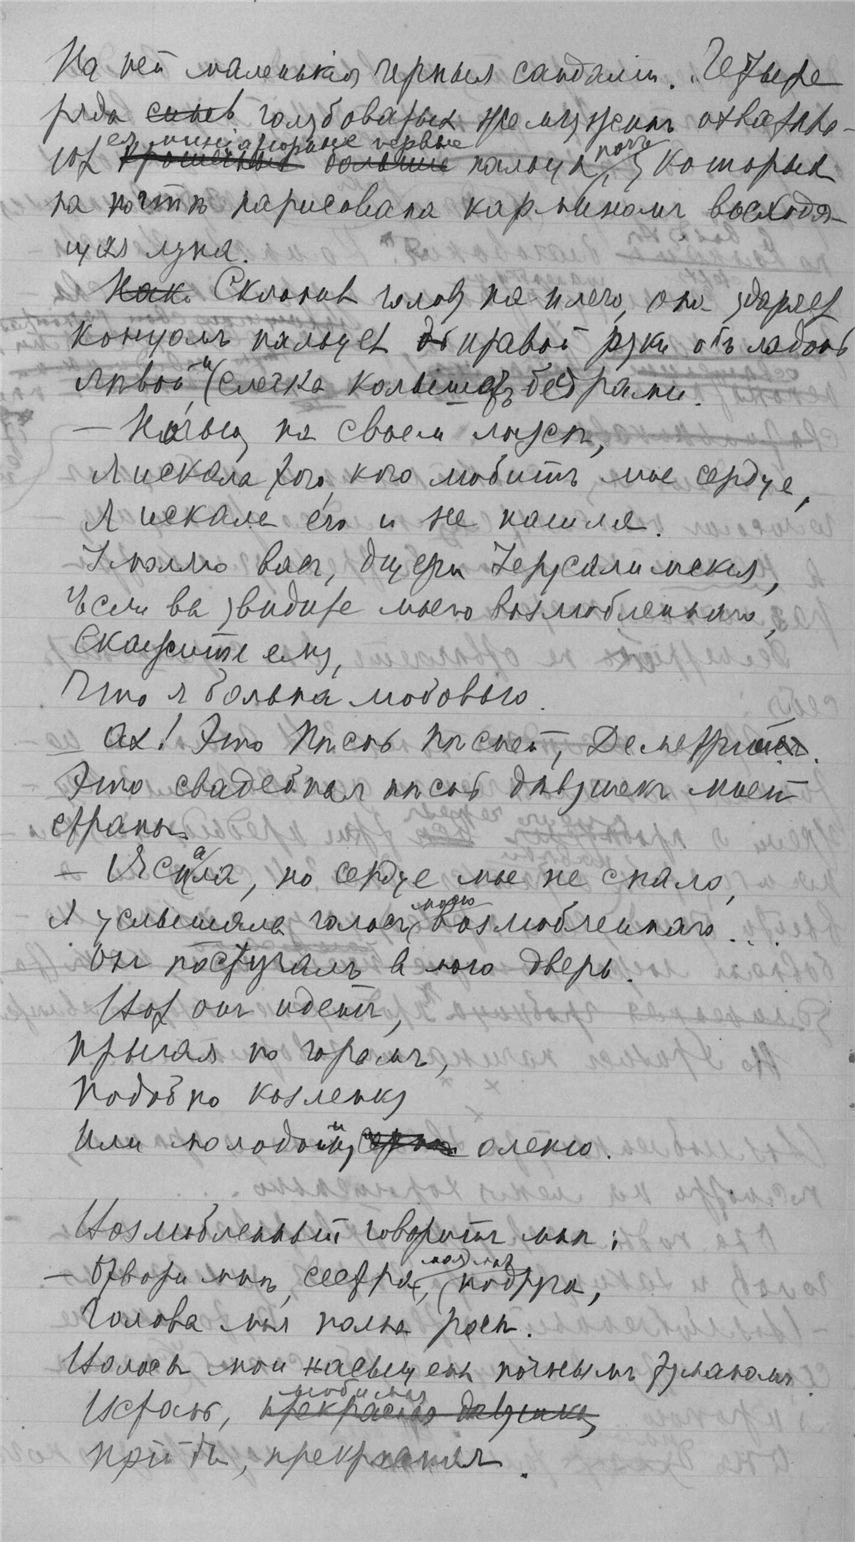 На ней маленькія черныя сандаліи. Четыре
ряда синев голубоватых жемчужинъ охватыва-
ют ея миніатюрные первые
крошечные большие пальцы, ноги которых
на ногтѣ нарисована карминомъ восходя-
щая луна.
Как. Склонив голову на плечо, она ударяет
концомъ пальцев правой руки объ ладонь
лѣвой, и слегка колышетъ бедрами.
— Ночью, на своем ложѣ,
Я искала того, кого любитъ мое сердце,
Я искала его и не нашла.
Умоляю васъ, дщери Іерусалимскія,
Если вы увидите моего возлюбленнаго,
Скажите ему,
Что я больна любовью.
Ах! Это Пѣснь пѣсней, Деметріосъ.
Это свадебная пѣснь дѣвушекъ моей
страны.
— Я спала, но сердце мое не спало,
Я услышала голосъ моего возлюбленнаго...
Он постучалъ в мою дверь.
Вот онъ идетъ,
Прыгая по горамъ,
Подобно козленку
Или молодому оленю.
Возлюбленный говоритъ мнѣ:
— Отвори мнѣ, сестра, моя подруга,
Голова моя полна росы.
Волосы мои насыщены ночнымъ туманомъ.
Встань, любимая прекрасная дѣвушка,
Прійди, прекрасная.